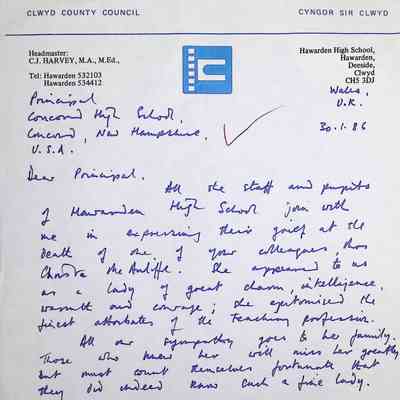 CLWYD COUNTY COUNCIL
CYNGOR SIR CLWYD
Headmaster:
C.J. HARVEY, M.A., M.Ed.,
Tel: Hawarden 532103
Hawarden 534412
Hawarden High School,
Hawarden,
Deeside,
Clwyd
CH5 3DJ
Wales,
U.K.
30.1.86
Principal
Concord High School,
Concord, New Hampshire.
U.S.A.
Dear Principal.
All the staff and pupils
of Hawarden High School join with
me in expressing their grief at the
death of one of your colleagues Mrs
Christa McAuliffe. She appeared to us
as a lady of great charm, intelligence,
warmth and courage; she epitomised the
finest attributes of the teaching profession.
All our sympathy goes to her family.
Those who knew her will miss her greatly
but must count themselves fortunate that
they did indeed know such a fine lady.